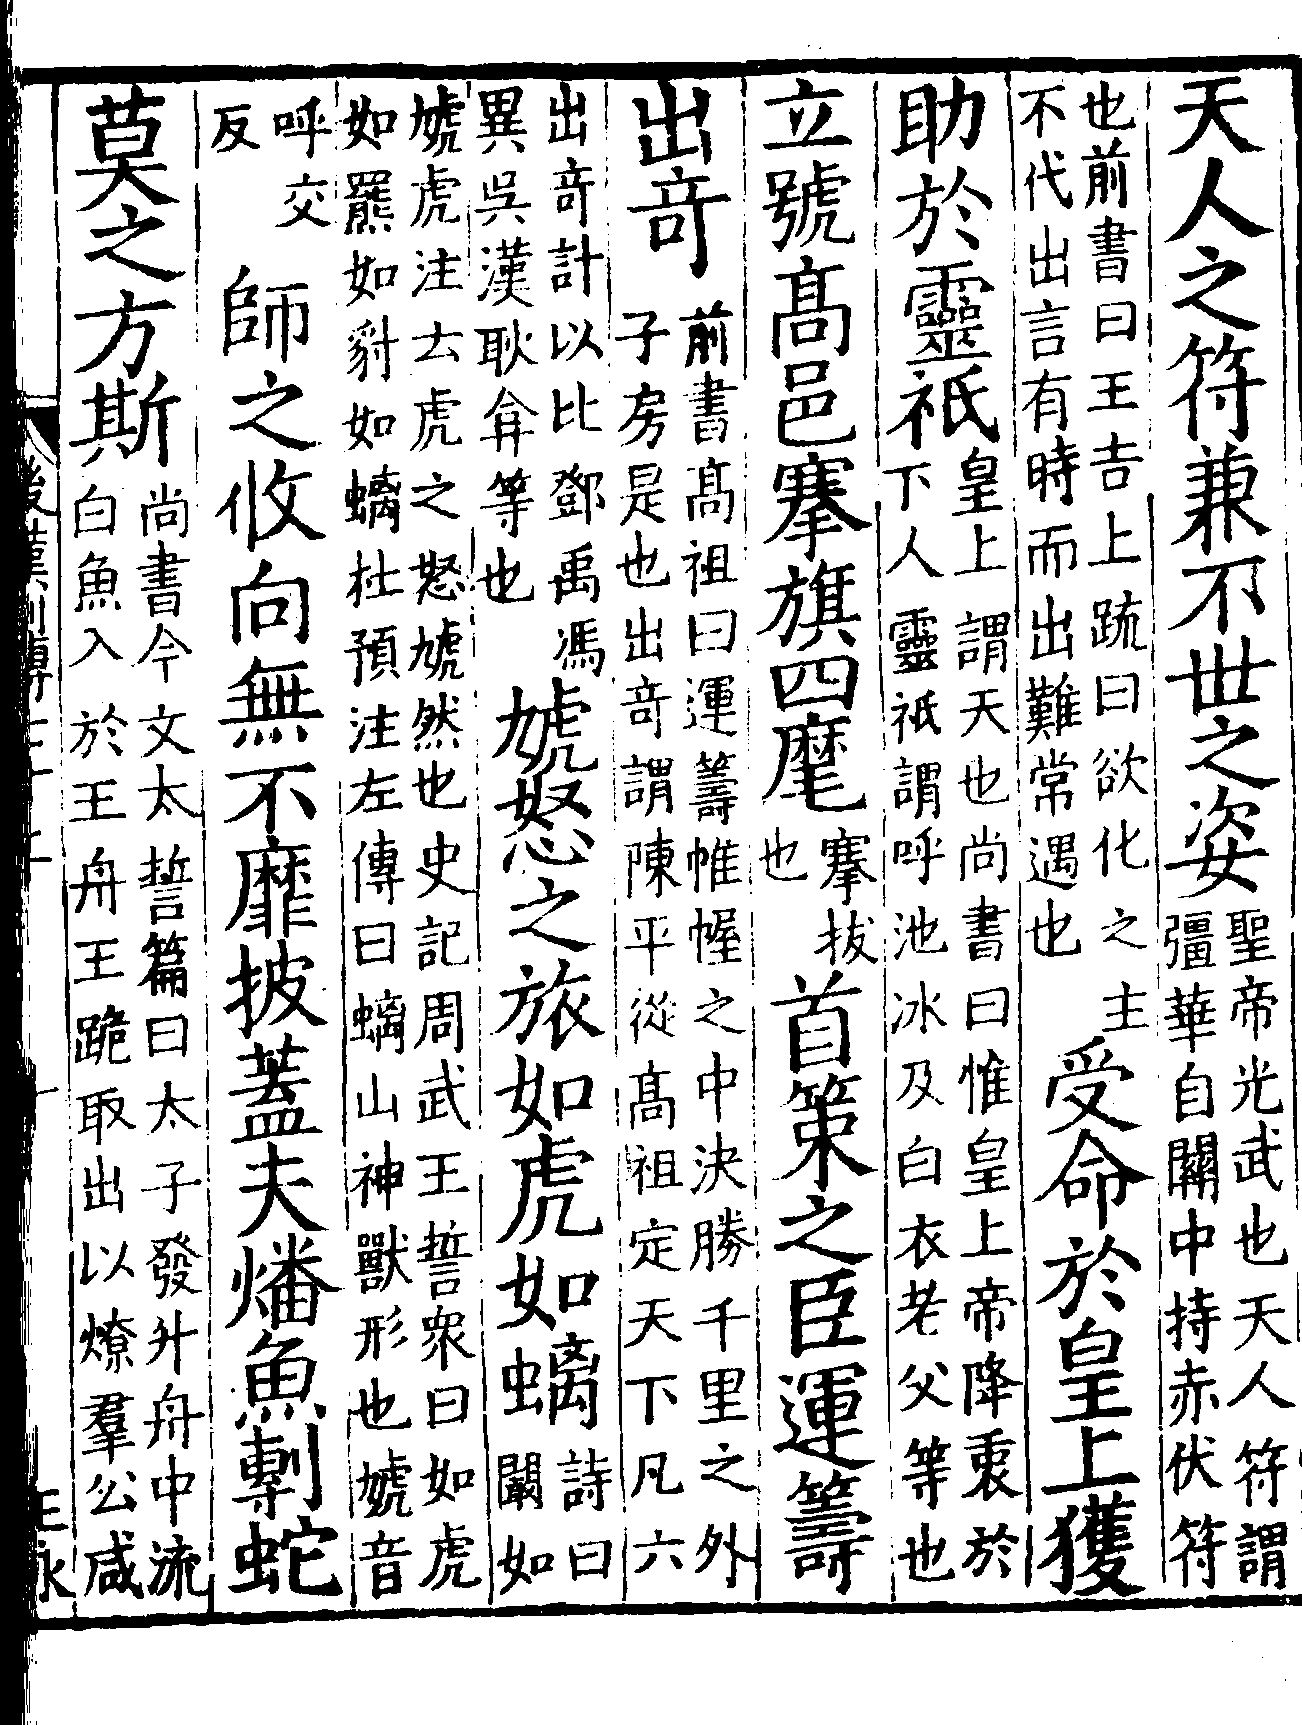 天人之符兼不世之姿聖帝光武也天人符謂
彊華自關中持赤伏符
也前書曰王吉上疏曰欲化之主
不代出言有時而出難常遇也受命於皇上獲
助於靈祇皇上謂天也尚書曰惟皇上帝降衷於
下人靈祇謂呼池冰及白衣老父等也
立號髙邑搴旗四麾搴拔
也首策之臣運籌
出竒前書髙祖曰運籌帷幄之中決勝千里之外
子房是也出竒謂陳平從髙祖定天下凡六
出竒計以比鄧禹馮
異吳漢耿弇等也虓怒之旅如虎如螭詩曰
闞如
虓虎注云虎之怒虓然也史記周武王誓衆曰如虎
如羆如豺如螭杜預注左傳曰螭山神獸形也虓音
呼交
反師之攸向無不靡披蓋夫燔魚剸蛇
莫之方斯尚書今文太誓篇曰太子發升舟中流
白魚入於王舟王跪取出以燎羣公咸